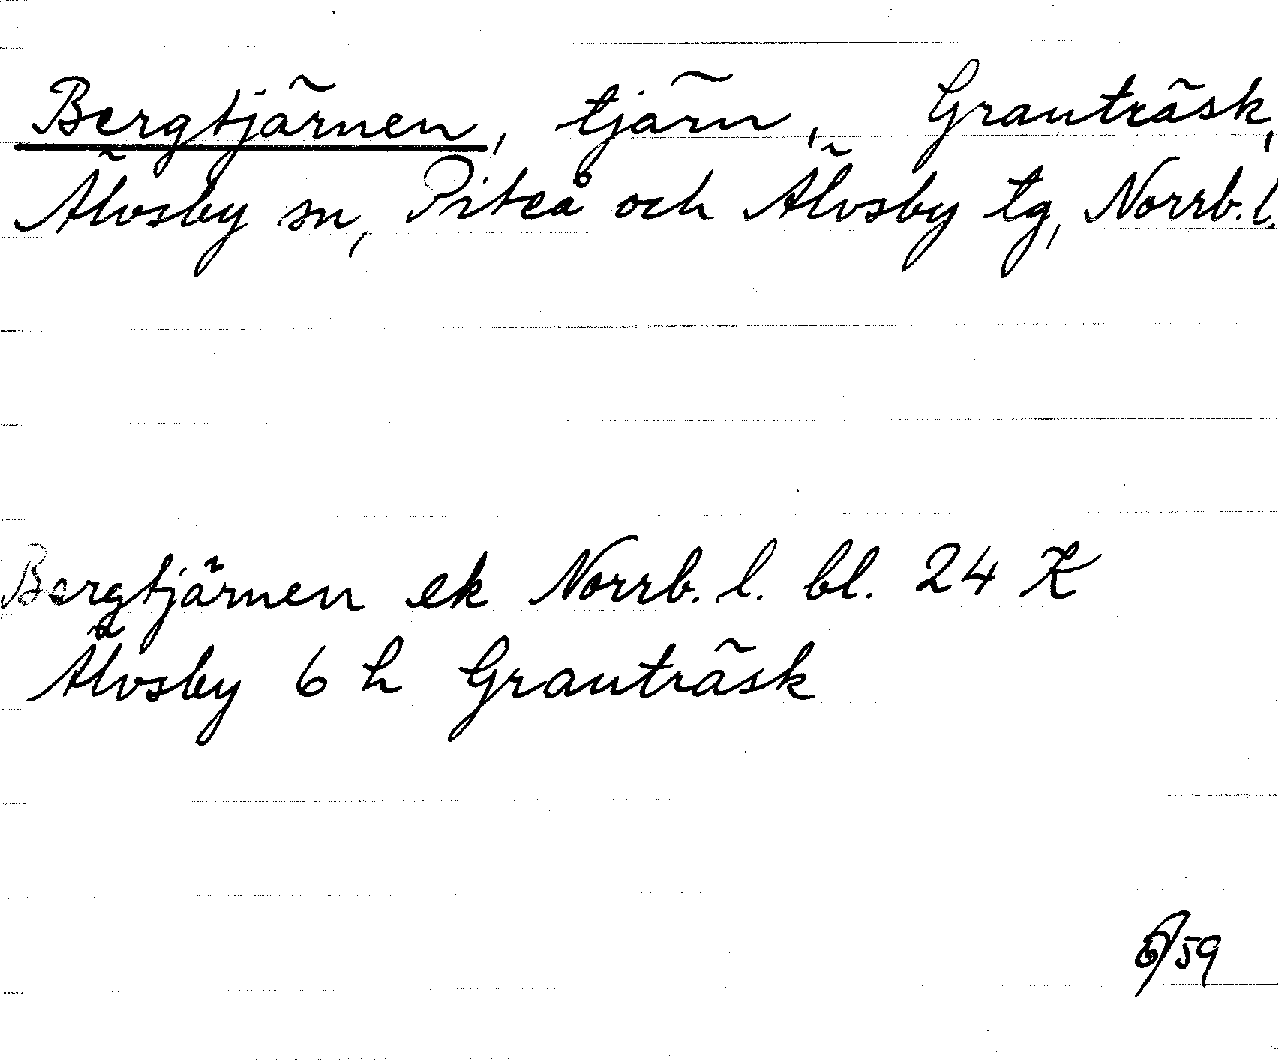 Bergtjärnen, tjärn, Granträsk,
Älvsby sn, Piteå och Älvsby tg, Norrb. l.
Bergtjärnen ek Norrb. l. bl. 24 K
Älvsby 6 h Granträsk
6/59